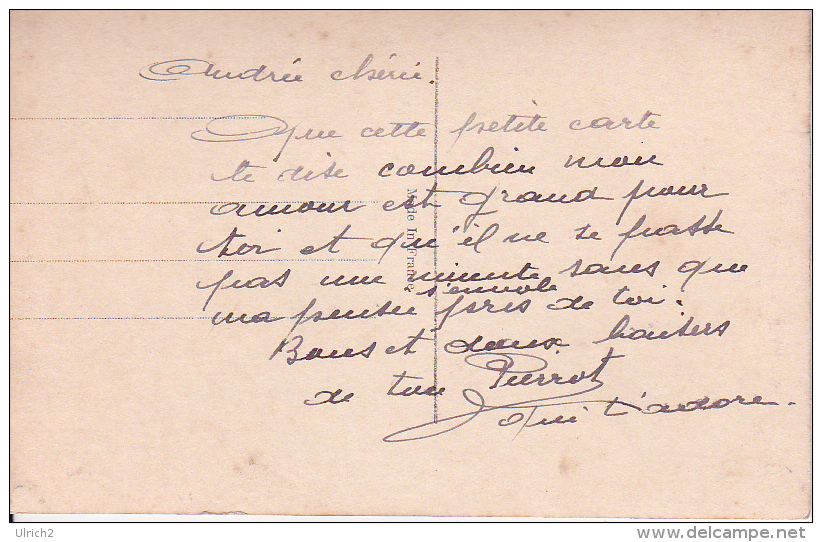 Andrée chérie.
Que cette petite carte
te dise combien mon
amour est grand pour
toi et qu'il ne se passe
pas une minute sans que
ma pensée s'envole près de toi.
Bons et doux baisers
de ton Pierrot
qui t'adore.
Made In France
Ulrich2
http://www.delcampe.net